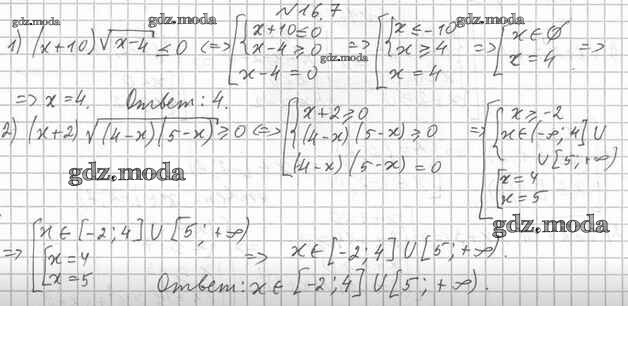 №16.7
gdz.moda gdz.moda gdz.moda
1) (x+10)√(x-4) ≤ 0 (=> [ { x+10≤0 x-4≥0 x-4=0 => [ { x≤-10 x≥4 x=4 => [ x∈∅ x=4 =>
gdz.moda
=> x=4. Ответ: 4.
2) (x+2)√((4-x)(5-x)) ≥0 (=> [ { x+2≥0 (4-x)(5-x)≥0 (4-x)(5-x)=0 => [ { x≥-2 x∈(-∞;4]∪ ∪[5;+∞) [ x=4 x=5
gdz.moda
gdz.moda
=> [ x∈[-2;4]∪[5;+∞) [ x=4 x=5 => x∈[-2;4]∪[5;+∞).
Ответ: x∈[-2;4]∪[5;+∞).